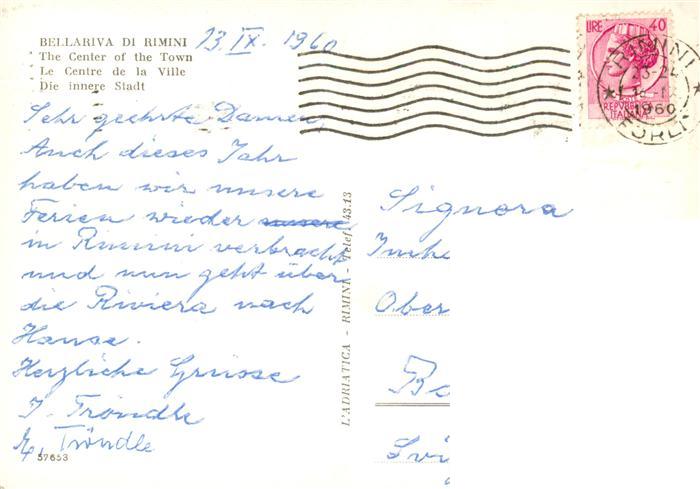 BELLARIVA DI RIMINI
The Center of the Town
Le Centre de la Ville
Die innere Stadt
13.IX.1960
LIRE 40
REPVBBLICA
ITALIANA
RIMINI
1960
FORLI
Sehr geehrte Damen,
Auch dieses Jahr
haben wir unsere
Ferien wieder unsere
in Rimini verbracht
und nun geht über
die Riviera nach
Hause.
Herzliche Grüsse
J. Tröndle
E. Tröndle
57653
L'ADRIATICA - RIMINI - Telef. 43.13
Signora
Ober
Svi